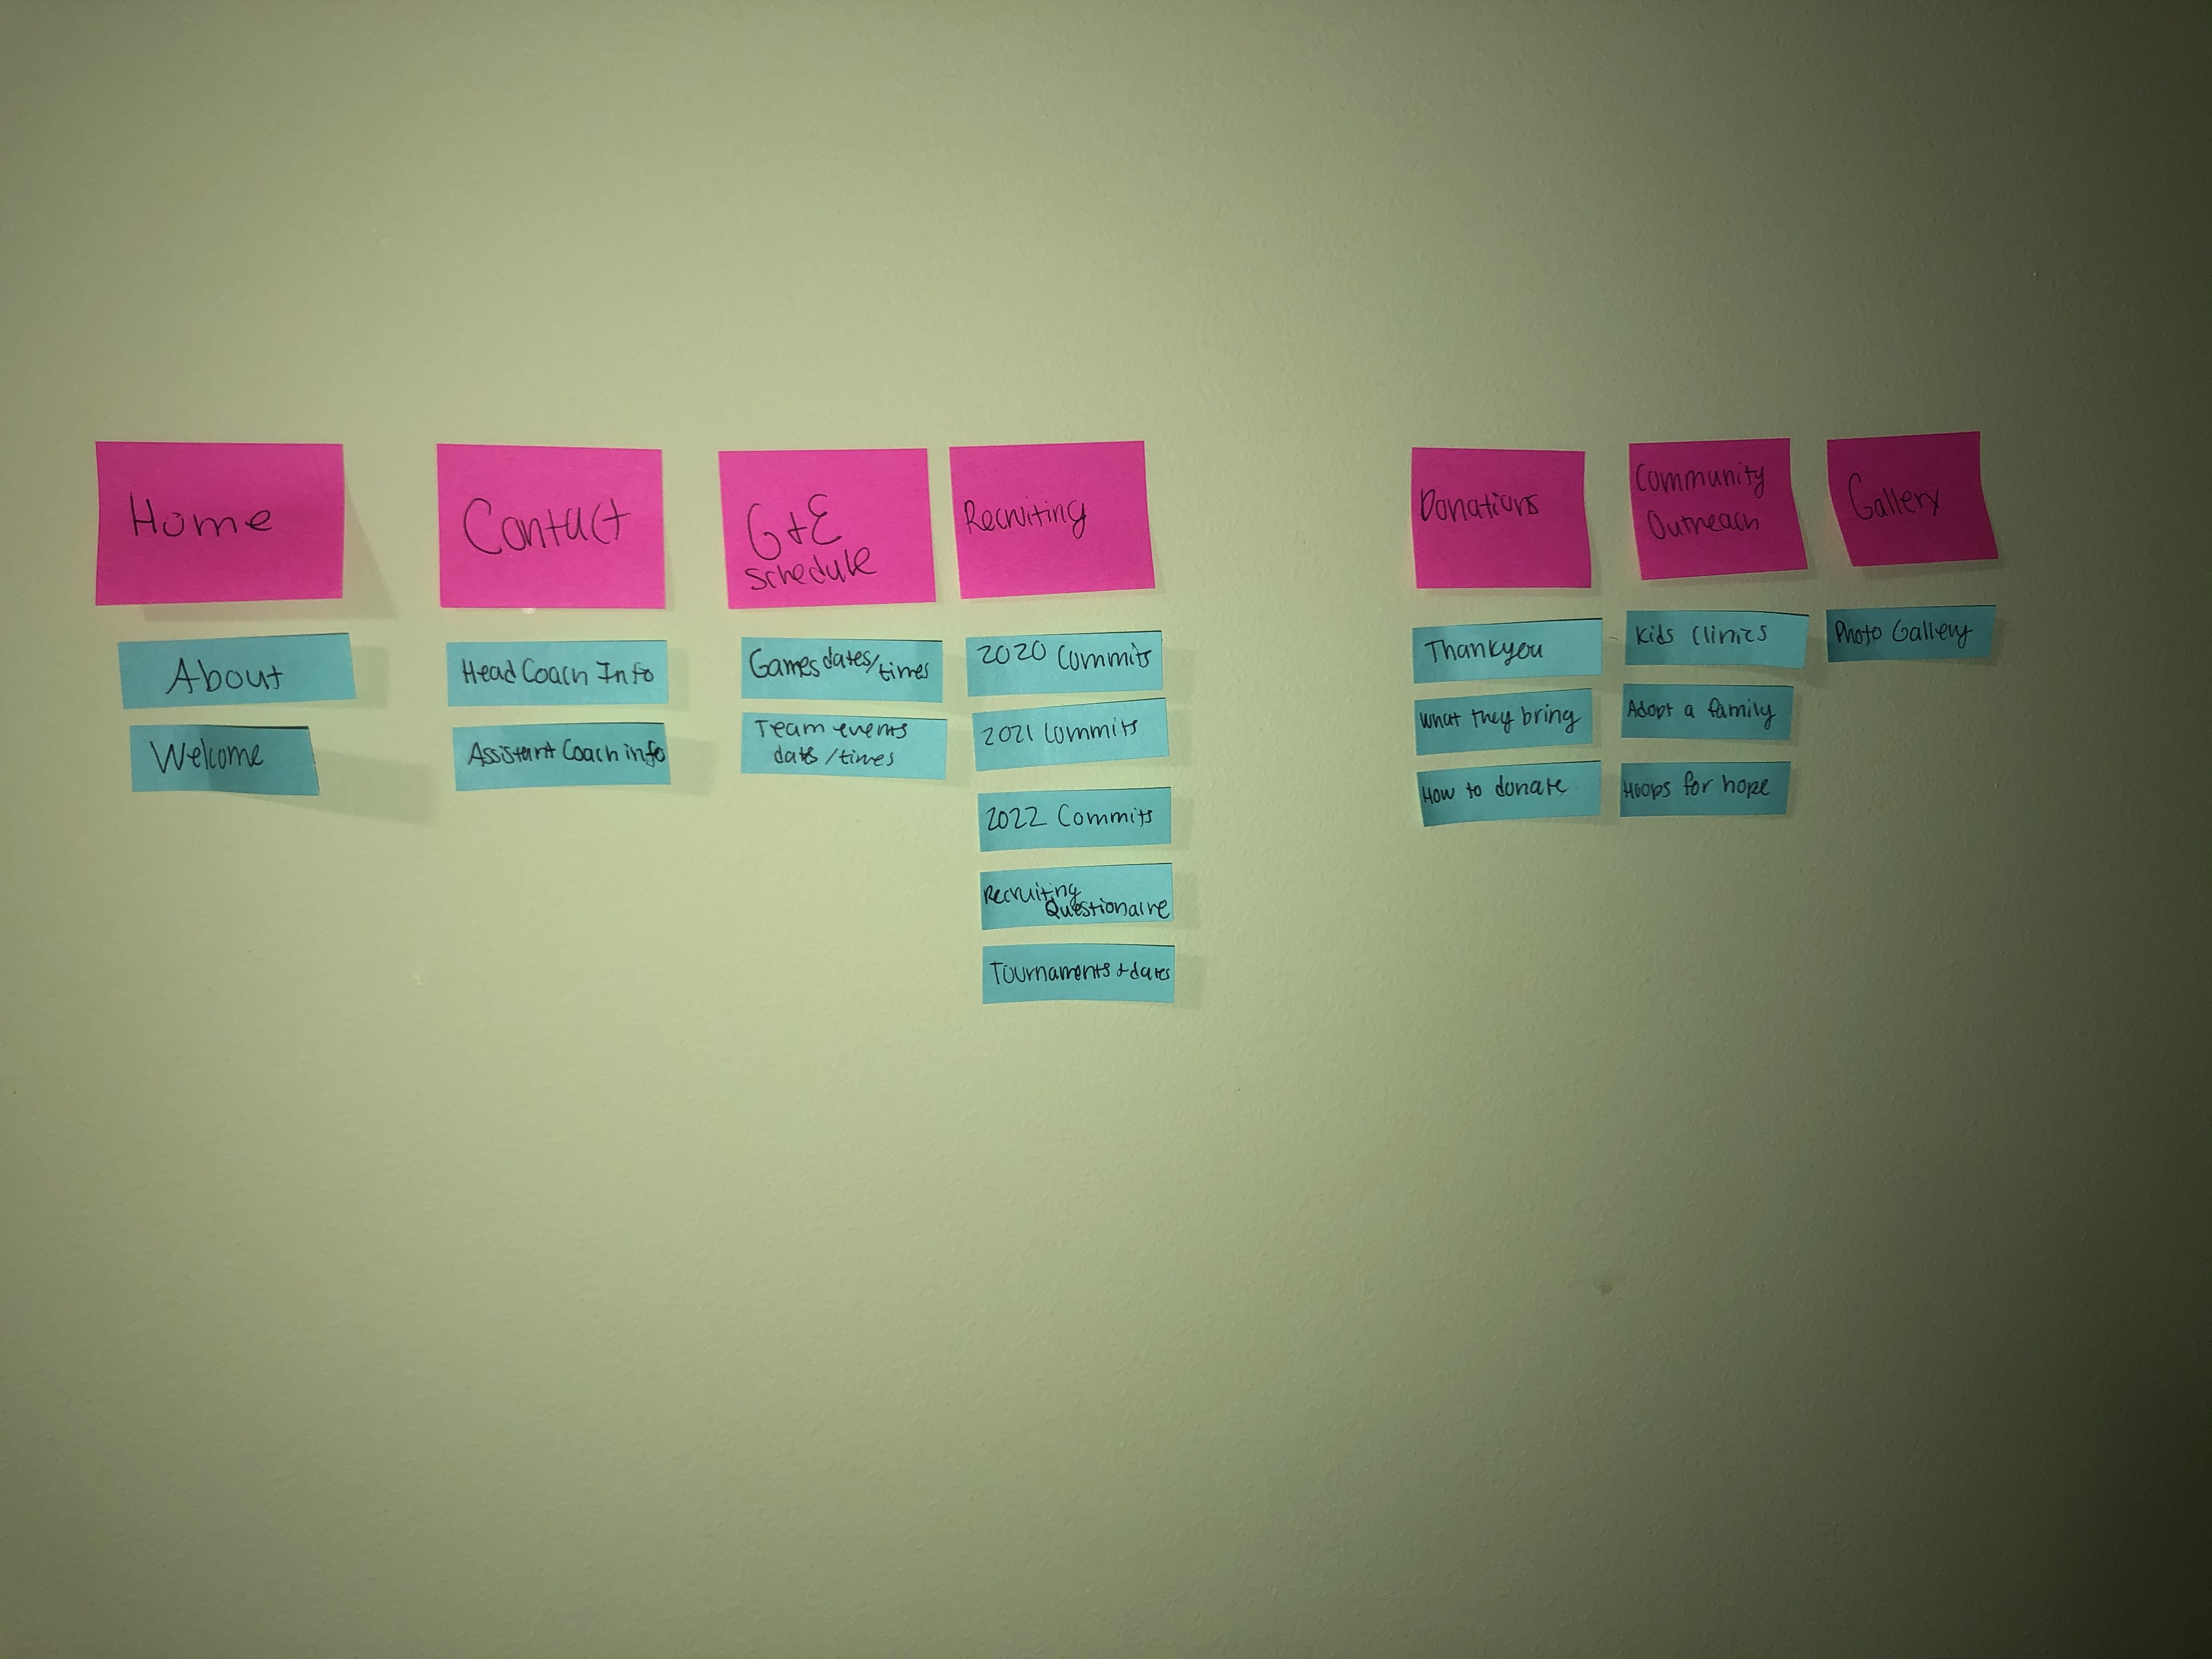 Home
About
Welcome
Contact
Head Coach Info
Assistant Coach info
G+E
schedule
Games dates/times
Team events
dates/times
Recruiting
2020 Commits
2021 Commits
2022 Commits
Recruiting
Questionaire
Tournaments + dates
Donations
Thankyou
What they bring
How to donate
Community
Outreach
Kids Clinics
Adopt a family
Hoops for hope
Gallery
Photo Gallery